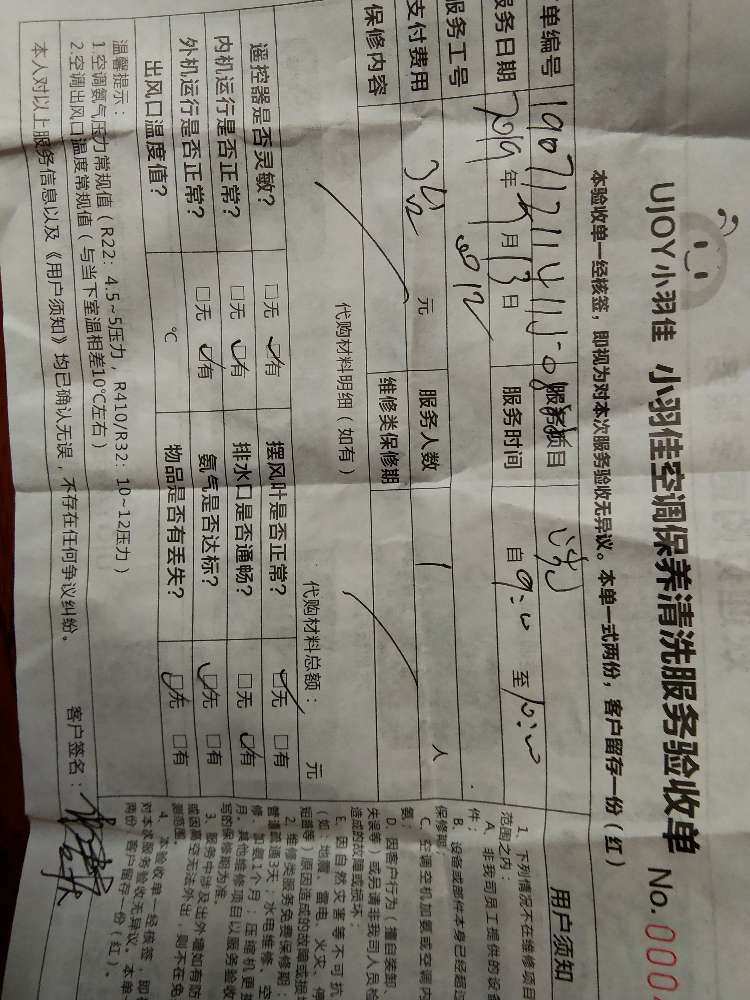 UJOY小羽佳 小羽佳空调保养清洗服务验收单 No. 000
本验收单一经核签，即视为对本次服务验收无异议。本单一式两份，客户留存一份（红）
单编号 服务项目 洗
服务日期 2019年 月13日 服务时间 自9:00 至10:00
服务工号 8012
支付费用 元 服务人数 1 人
保修内容 维修类保修期
代购材料明细（如有） 代购材料总额： 元
遥控器是否灵敏？ □无 ☑有 摆风叶是否正常？ ☑无 □有
内机运行是否正常？ □无 ☑有 排水口是否通畅？ □无 ☑有
外机运行是否正常？ □无 ☑有 氨气是否达标？ ☑无 □有
出风口温度值？ ℃ 物品是否有丢失？ ☑无 □有
温馨提示：
1.空调氨气压力常规值（R22：4.5~5压力，R410/R32：10~12压力）
2.空调出风口温度常规值（与当下室温相差10℃左右）
本人对以上服务信息以及《用户须知》均已确认无误，不存在任何争议纠纷。 客户签名：
用户须知
1、下列情况不在维修项目
范围之内：
A、非我司员工提供的设备
件；
B、设备或部件本身已经超过
保修期；
C、空调空机加氨或空调内
氨；
D、因客户行为（擅自装卸、
失误等）或另请非我司人员检
造成的故障或损坏；
E、因自然灾害等不可抗
（如：地震、雷电、火灾、停
短路等）原因造成的故障或损
2、维修类服务免费保修期：
普通疏通3天；水电维修、空
修、加氨1个月；压缩机更换
月。其他维修项目以服务验收
写的保修期为准。
3、服务中涉及出外墙如有防
或因高空无法外出，则不在免
测范围。
4、本验收单一经核签，即视
对本次服务验收无异议。本单
两份，客户留存一份（红）。